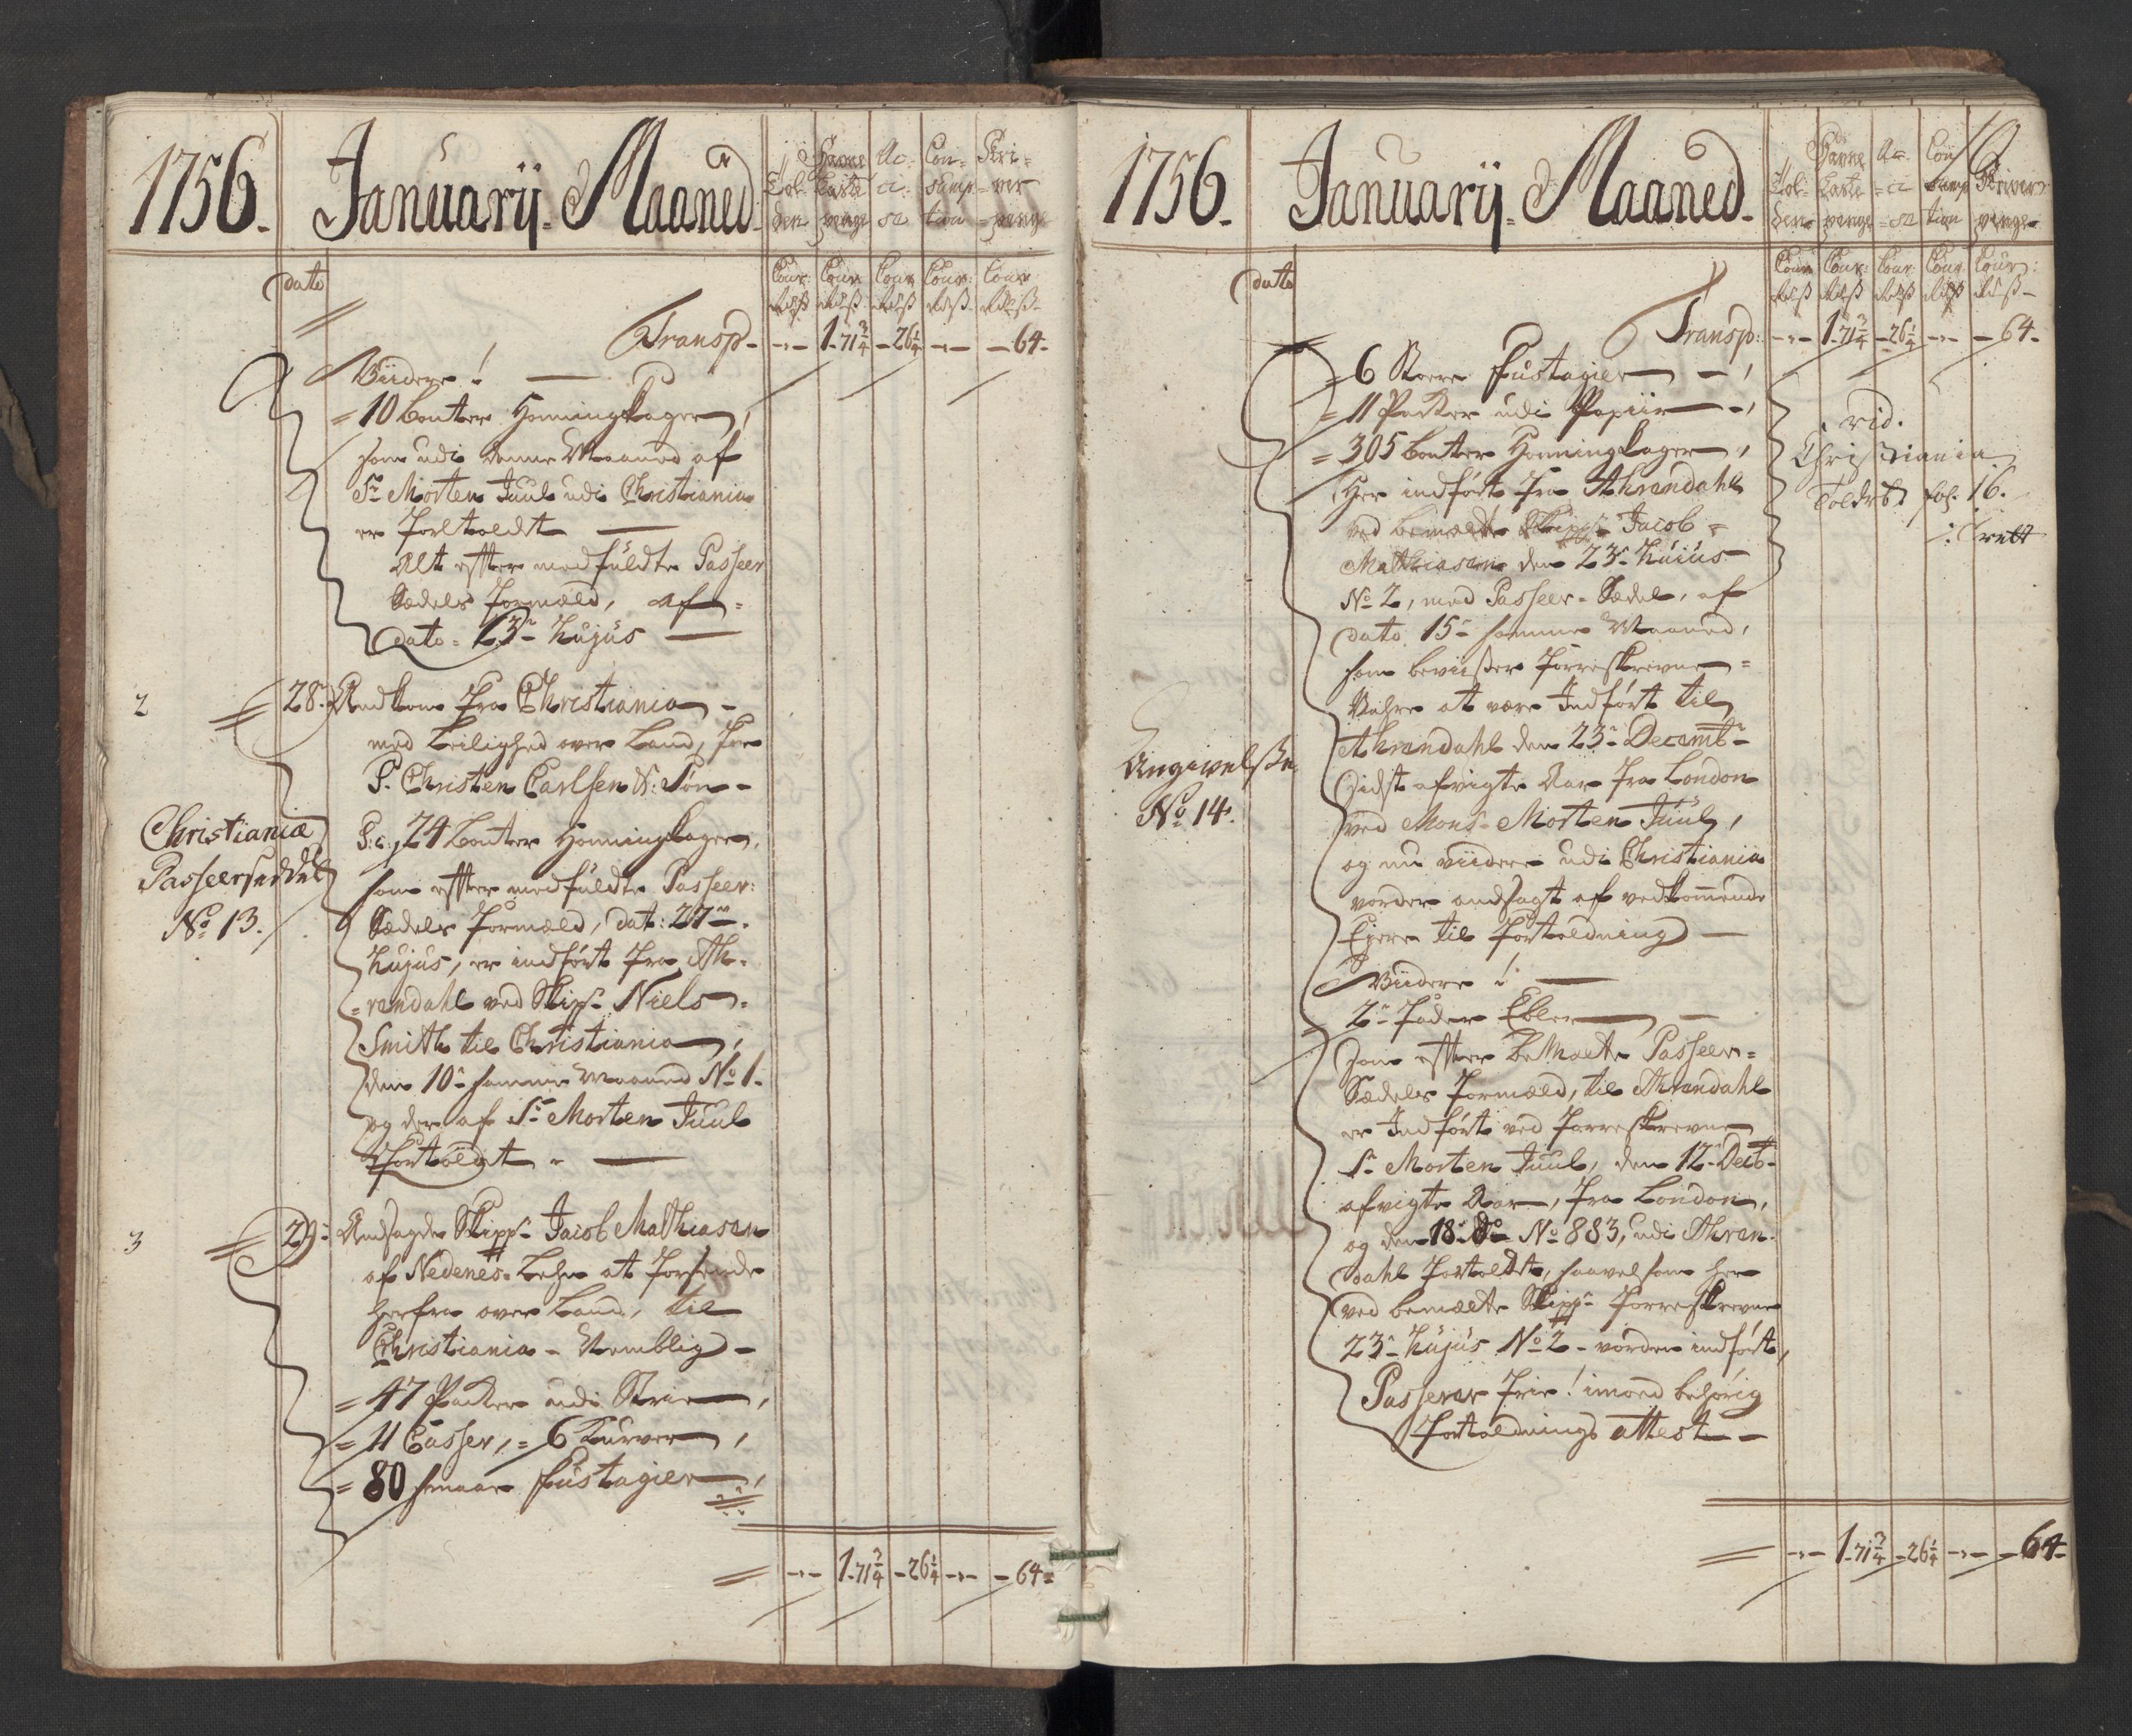 1756. Januarij Maaned.
Tol- den
Havne Laste penge
Ac- ci- se
Con- sump- tion
Skri- ver penge
dato
Cour: Cour: Cour: Cour: Cour:
Rd ß Rd ß Rd ß Rd ß Rd ß
Transp - -"- 1-71 3/4 -26 1/4 -"- -64-
Viidere!
=10 bonter Honningkager,
som udi denne Maaned af
Sr Morten Juul udi Christiania
er fortoldt
Alt efter medfuldte Passeer
Sædels Formæld, af=
dato= 23de hujus
2
28de Andkom fra Christiania -
med Leilighed over Land, for
S. Christen Carlsen & Søn -
Christianiæ
Passeerseddel
No 13.
24 bonter Honningkager,
som efter medfuldte Passeer:
Sædels Formæld, dat: 27de
hujus, er indført fra Ah=
=rendahl ved Skipr Niels
Smith til Christiania,
den 10de samme Maaned No 1.
og der af Sr Morten Juul
Fortoldt
3
29de Andsagde Skippr Jacob Mathiasen
af Nedenes Lehn at forsende
herfra over Land, til
Christiania - Nemblig -
=47 Pakker udi Strie,
=11 Casser, =6 Kurver,
=80 smaae Fustagier,
-"- 1-71 3/4 -26 1/4 -"- -64=
1756. Januarij Maaned.
Tol- den
Havne Laste penge
Ac- ci- se
Con- sump- tion
Skriver penge
dato
Cour: Cour: Cour: Cour: Cour:
Rd ß Rd ß Rd ß Rd ß Rd ß
Transp: -"- 1-71 3/4 -26 1/4 -"- -64-
=6 Store Fustagier,
=11 Pakker udi Papiir,
=305 bonter Honningkager,
Her indført fra Ahrendahl
ved bemælte Skippr Jacob=
Mathiasen den 23de hujus
No 2, med Passeer-Sædel, af
dato 15de samme Maaned,
som beviißer Forreskrevne=
Vahre at være Indført til
Ahrendahl den 23de Decembr
sidst afvigte Aar fra London
ved Monsr Morten Juul,
og nu viidere udi Christiania
vorder andsagt af vedkommende
Ejere til Fortoldning
vid.
Christiania
Toldrb fol. 16.
Angivelße
No 14.
Viidere!
2de Fader Ebler
som efter bemælte Passeer=
Sædels Formæld, til Ahrendahl
er Indført ved Forreskrevne
Sr Morten Juul, den 12de Decb-
afvigte Aar, fra London,
og den 18de Do No 883, udi Ahren=
dahl fortoldet, saavelsom her
ved bemælte Skippr Forreskrevne
23de hujus No 2 - vorden indført,
Passerer Frie! imoed behørig
Fortoldnings attest
-"- 1-71 3/4 -26 1/4 -"- -64-